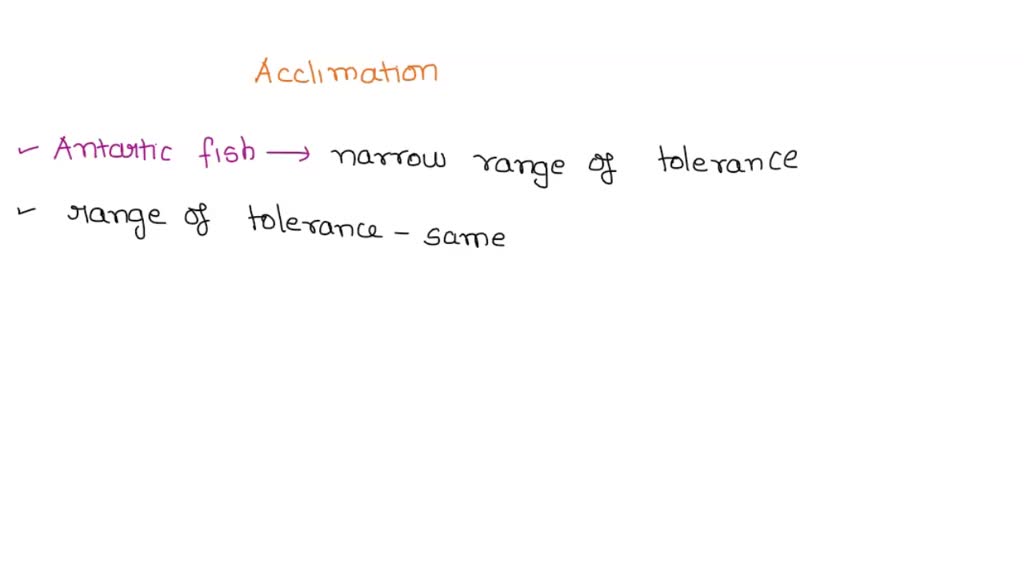 Acclimation
✓ Antartic fish → narrow range of tolerance
✓ range of tolerance - same